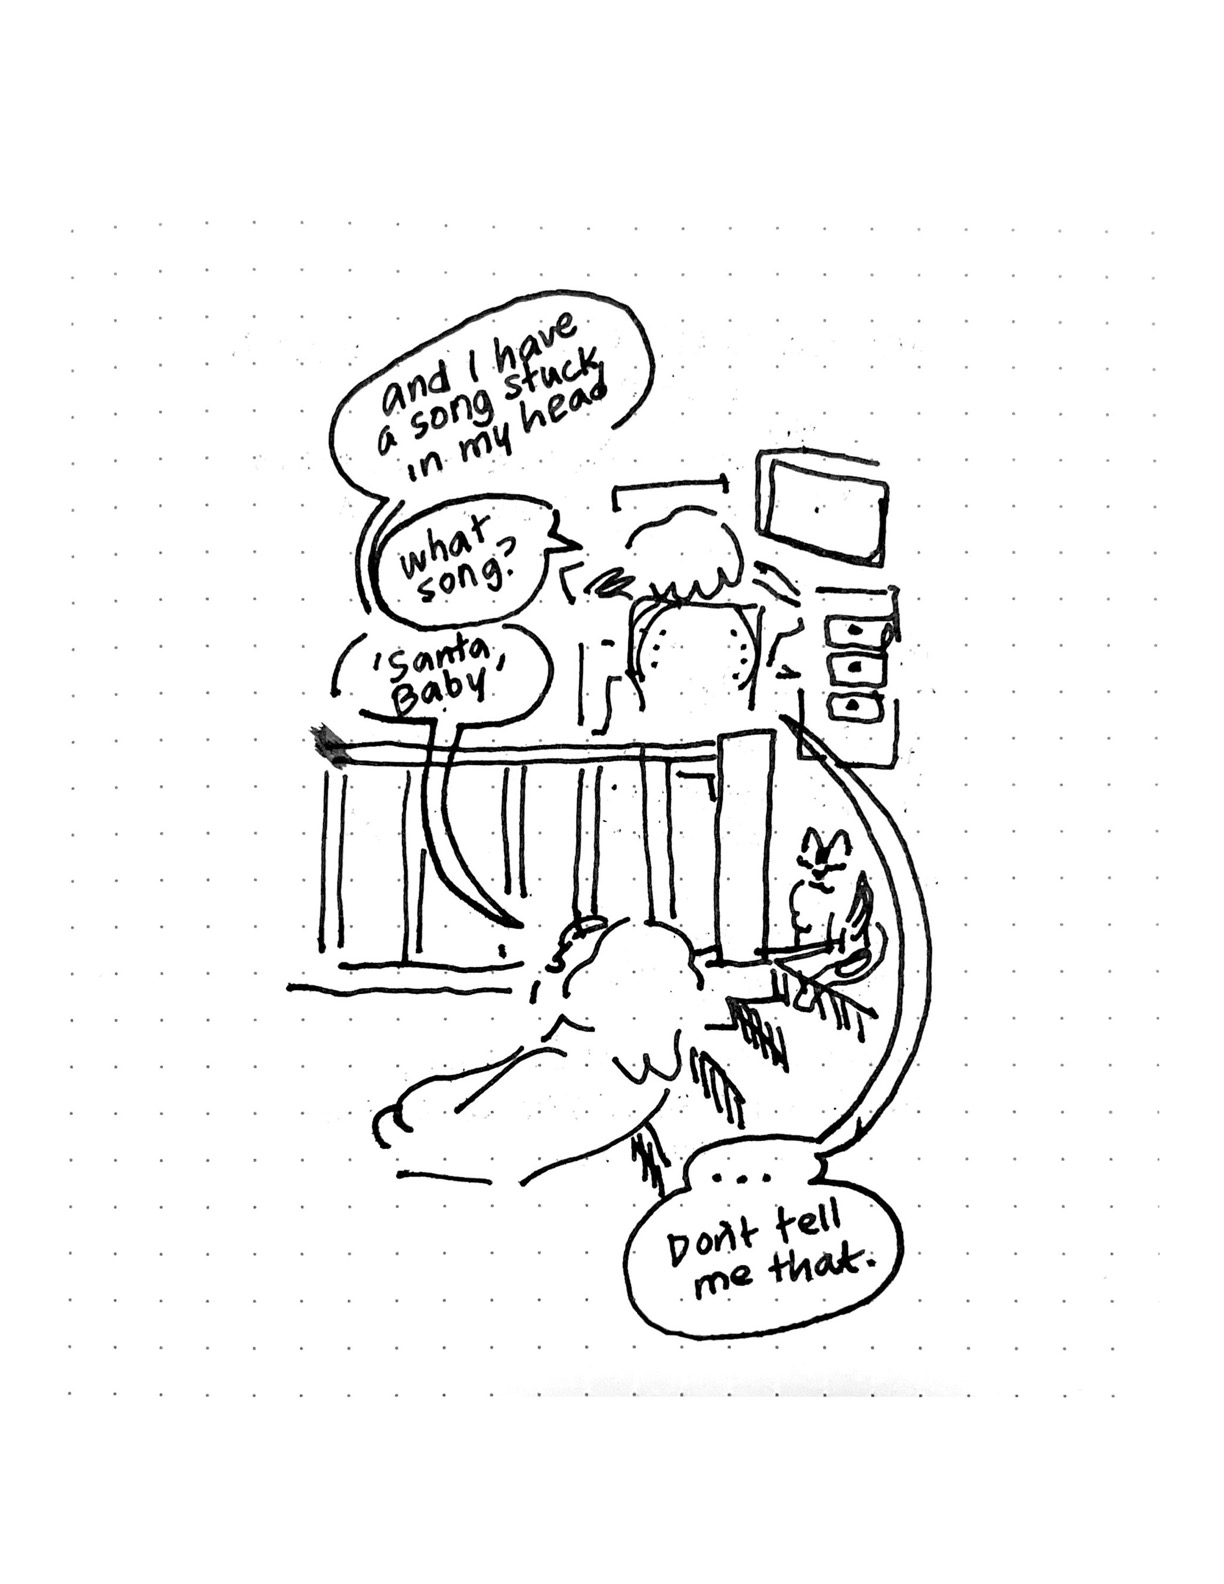 and I have
a song stuck
in my head
what
song?
'Santa
Baby'
...
Don't tell
me that.